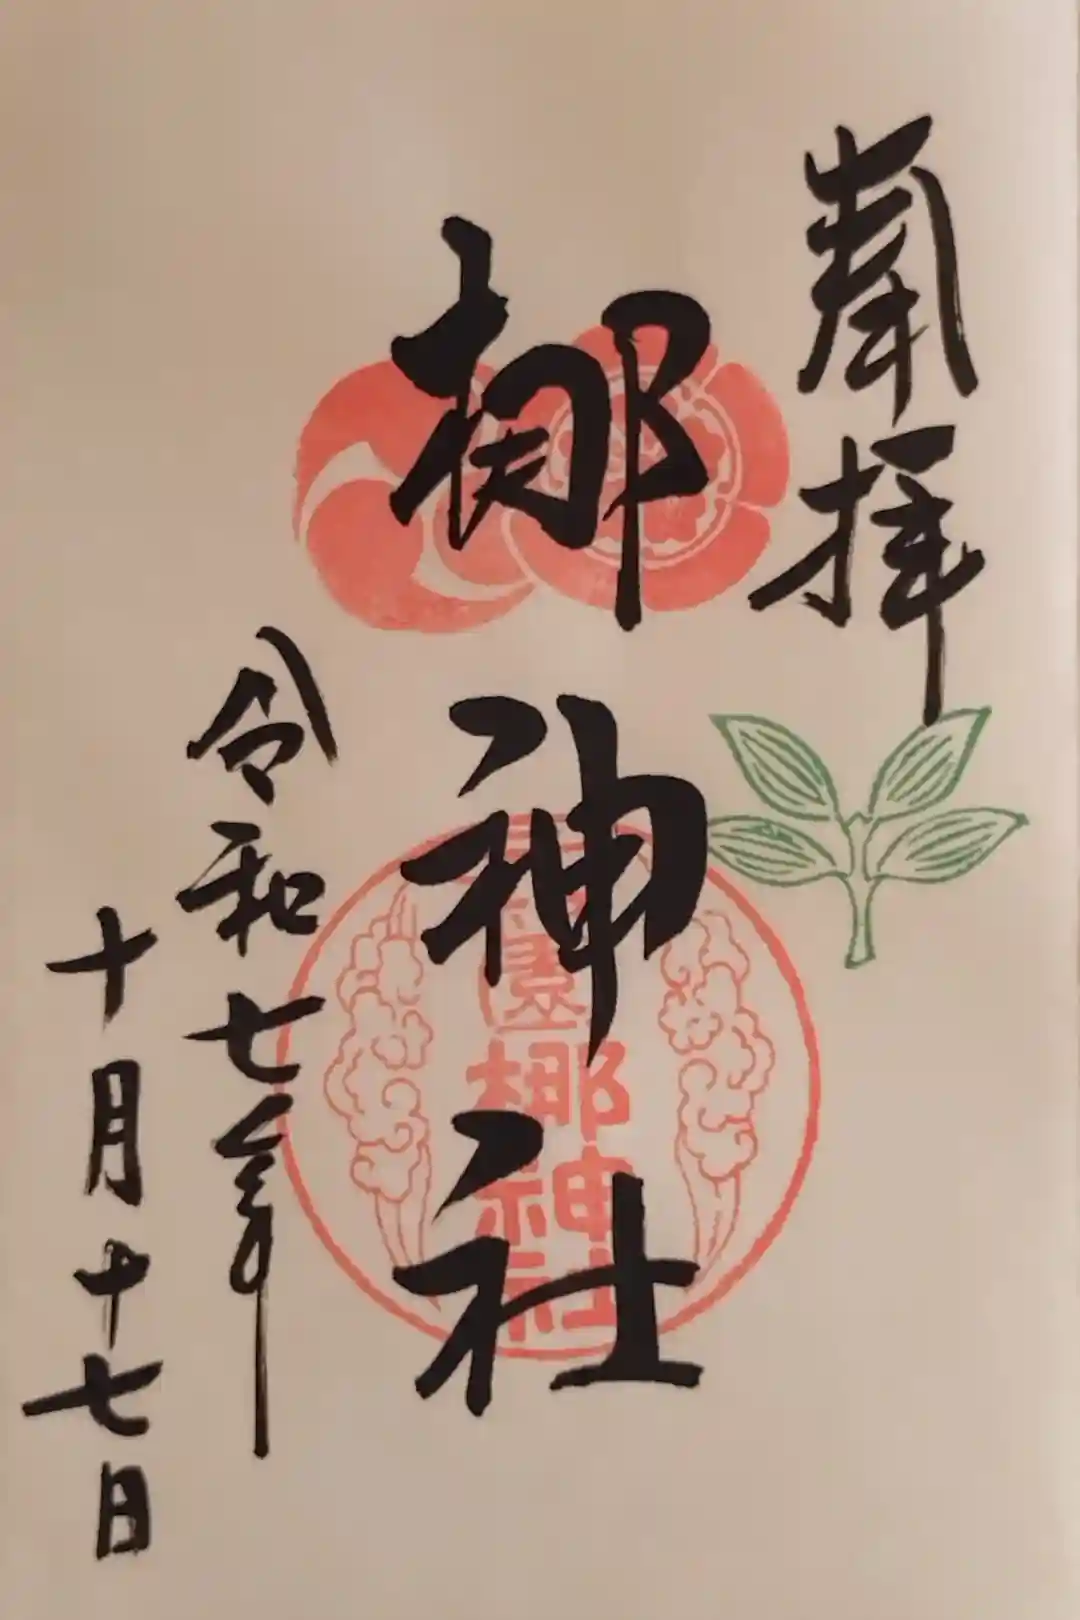 奉拝
梛神社
令和七年
十月十七日
園
梛神社